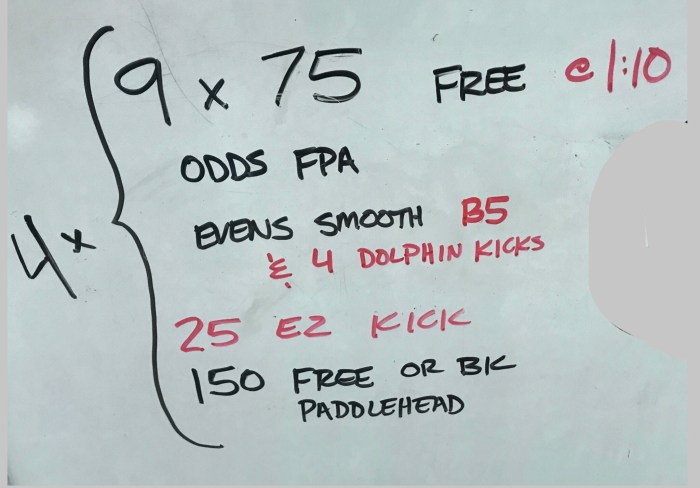 4x
9 x 75 FREE @ 1:10
ODDS FPA
EVENS SMOOTH B5
& 4 DOLPHIN KICKS
25 EZ KICK
150 FREE OR BK
PADDLEHEAD